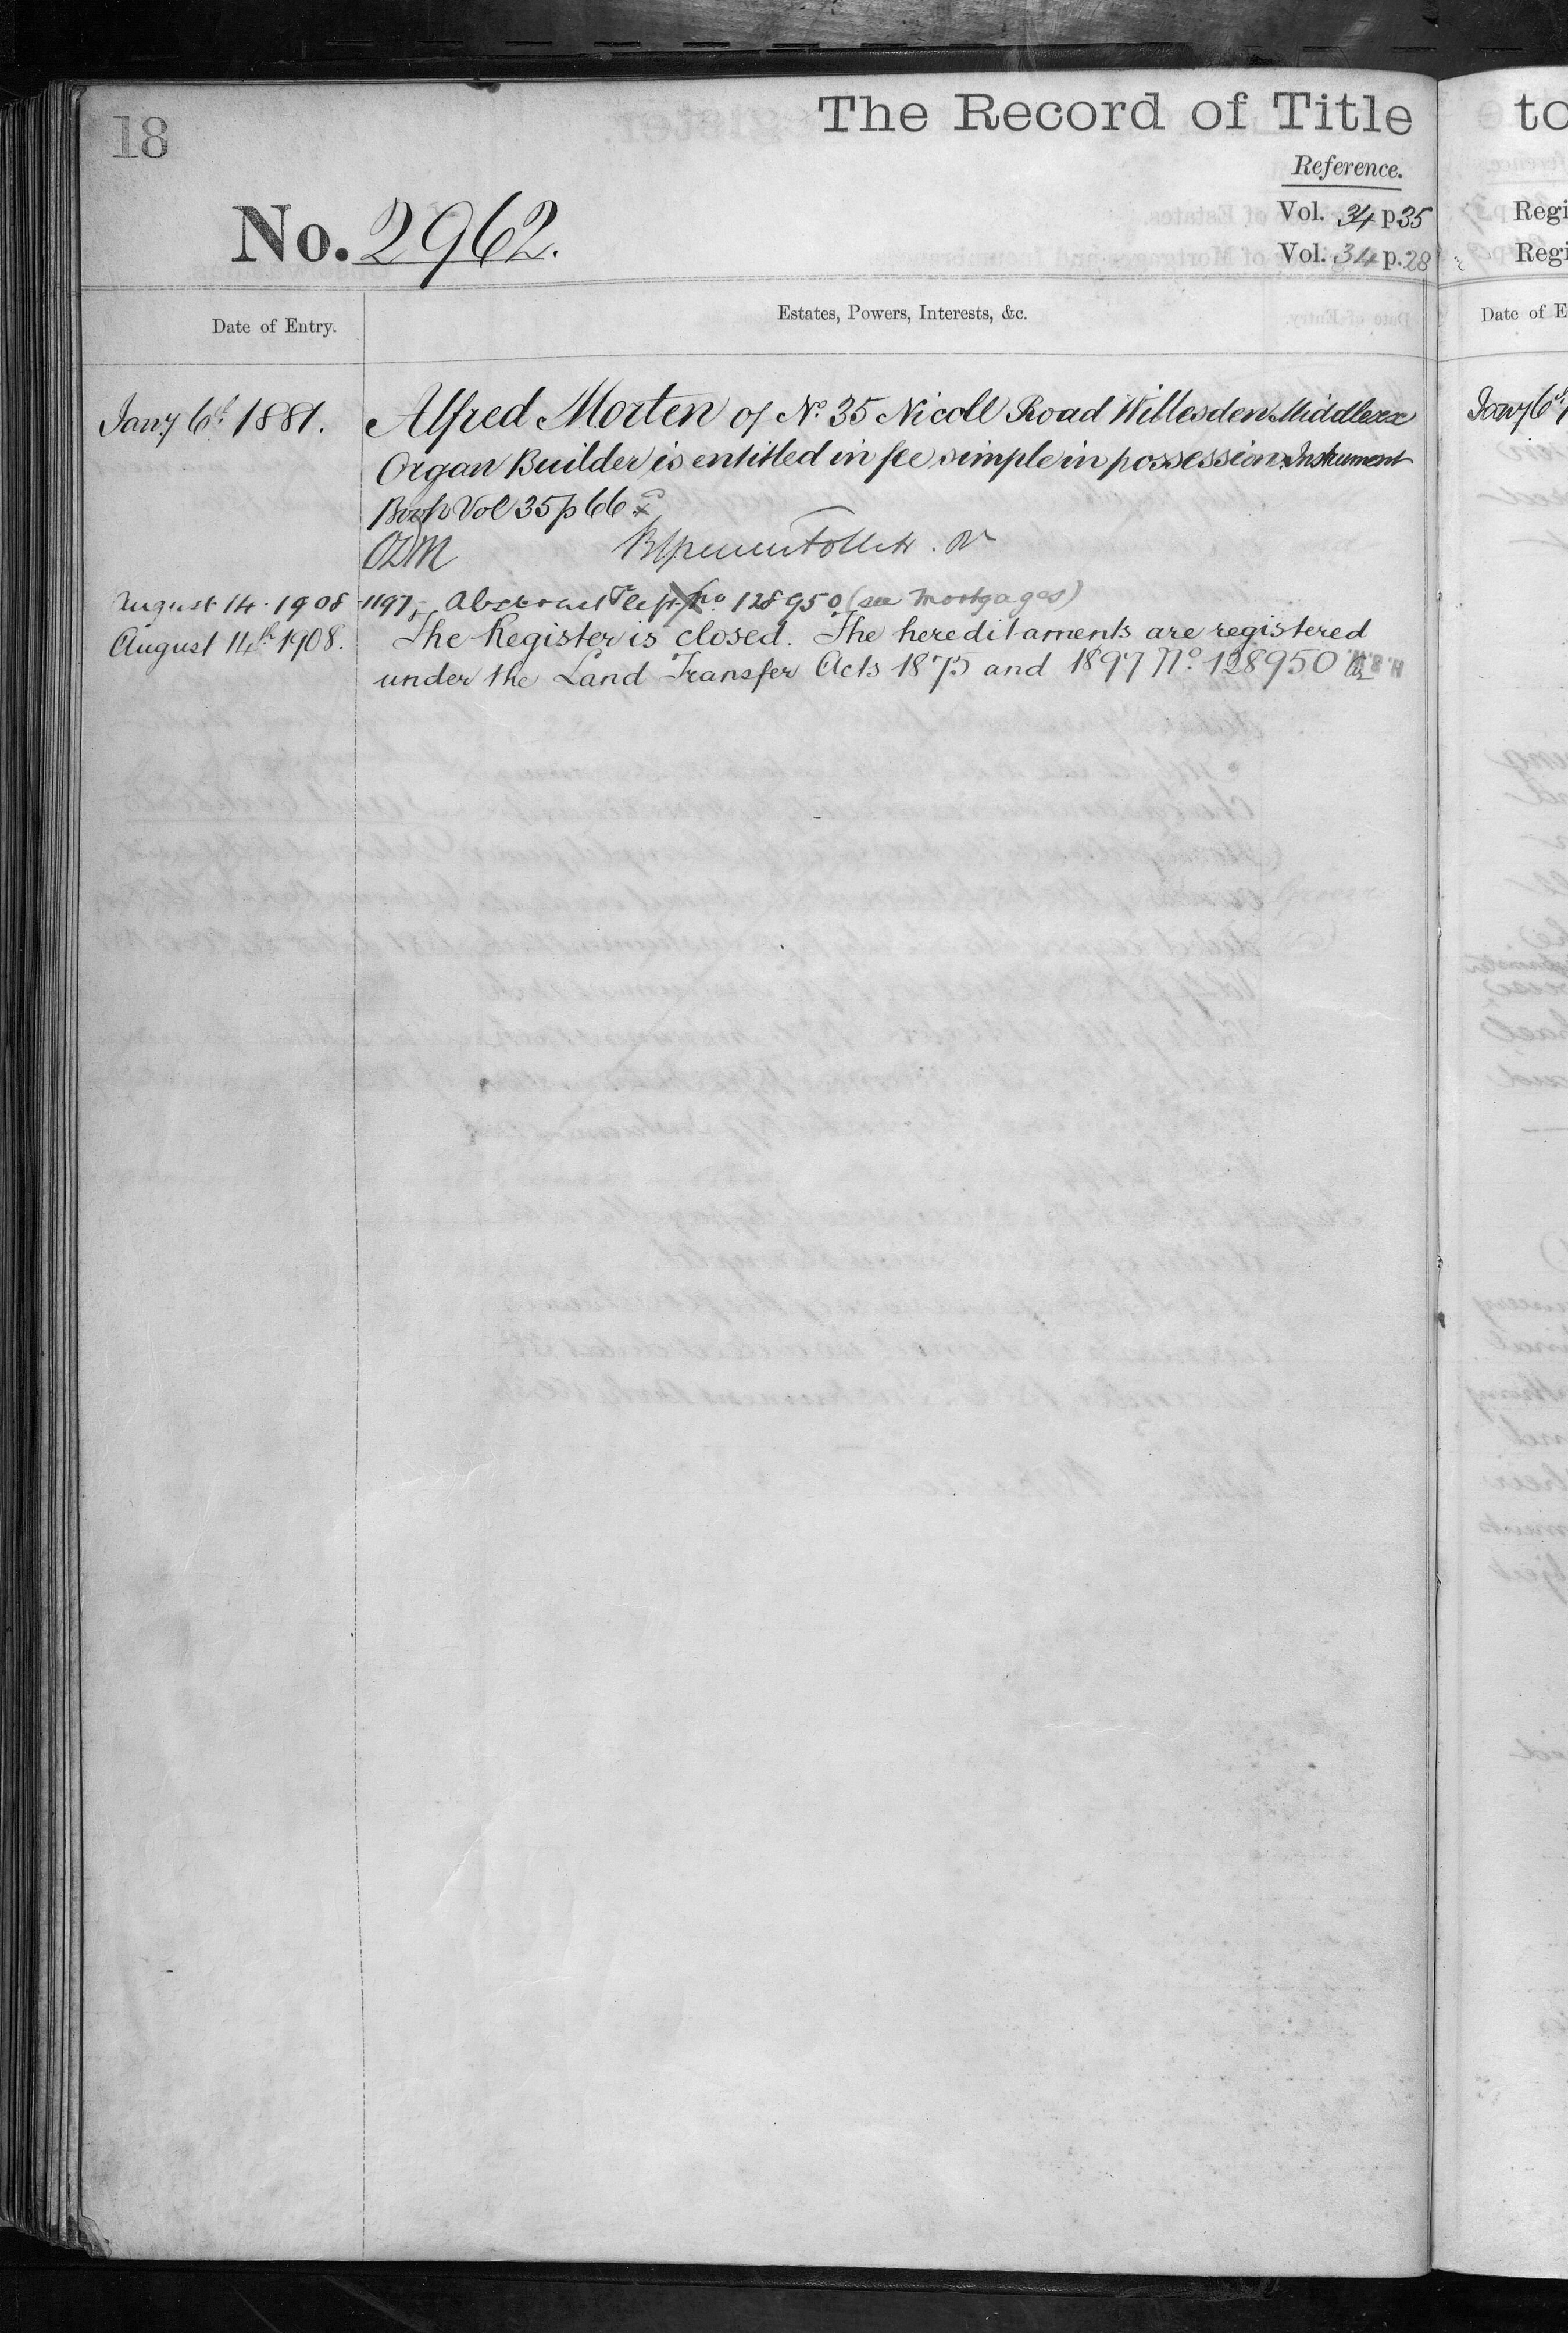 18
The Record of Title
to
Reference.
No. 2962.
Vol. 34 p 35
Regi
Vol. 34 p. 28
Regi
Date of Entry.
Estates, Powers, Interests, &c.
Date of E
Jany 6th 1881.
Alfred Morten of No. 35 Nicoll Road Willesden Middlesex
Jany 6th
Organ Builder is entitled in fee simple in possession. Instrument
Book Vol 35 p 66
August 14. 1908
1197, Abstract No. 128950 (see Mortgages)
August 14th 1908.
The Register is closed. The hereditaments are registered
under the Land Transfer Acts 1875 and 1897 No. 128950